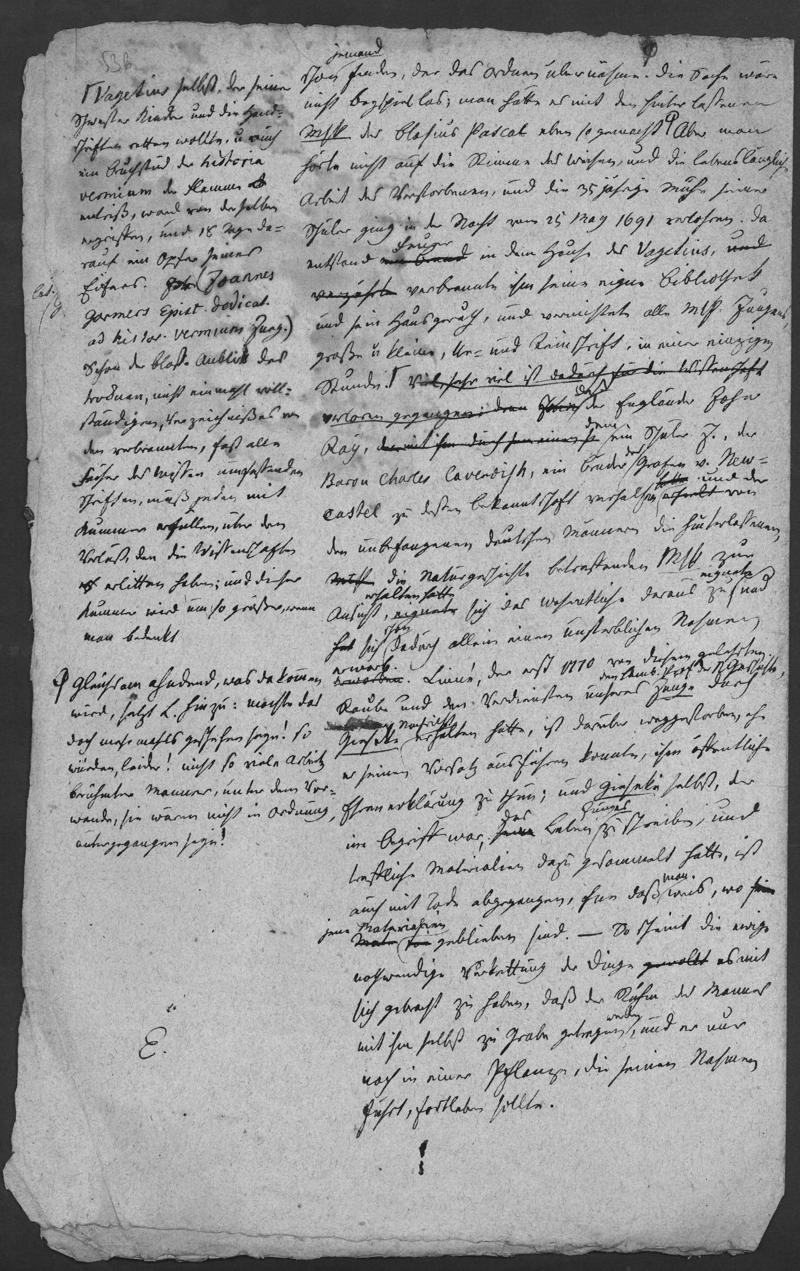 53b
Vagetius selbst, der seine
Schwester Kinder und die Hand-
schriften retten wollte, u. auch
ein Bruchstück der historia
vermium den Flammen
entriß, ward von denselben
ergriffen, und 18 Tage da-
rauf ein Opfer seines
Eifers. (Joannes
Garmers Epist. dedicat.
ad histor. vermium Jung.)
Schon der bloße Anblick des
trocknen, nicht einmahl voll-
ständigen, Verzeichnißes von
den verbrannten, fast alle
Fächer des Wissens umfassenden
Schriften, muß jeden mit
Kummer erfüllen, über den
Verlust, den die Wissenschaften
erlitten haben; und dieser
Kummer wird um so größer, wenn
man bedenkt
Gleichsam ahndend, was da kommen
wird, setzt L. hinzu: möchte das
doch mehrmahls geschehen seyn! so
würden, leider! nicht so viele Arbeiten
berühmter Männer, unter dem Vor-
wande, sie wären nicht in Ordnung,
untergegangen seyn!
E.
jemand
schon finden, der das Ordnen übernähme. Die Sache wäre
nicht beyspiellos; man hätte es mit den hinterlassenen
Msk. des Blasius Pascal eben so gemacht. Aber man
hörte nicht auf die Stimme des Weisen, und die lebenslängliche
Arbeit des Verstorbenen, und die 35jährige Mühe seiner
Schüler ging in der Nacht vom 25 May 1691 verlohren. Da
entstand Feuer in dem Hause des Vagetius, und
verzehrte verbrannte ihm seine eigne Bibliothek
und sein Hausgeräth, und vernichtete alle Msk. Jungens,
große u. kleine, Ur- und Reinschrift, in einer einzigen
Stunde. Viel, sehr viel ist dadurch für die Wissenschaft
verloren gegangen; denn daß der Engländer John
Ray, dem sein Schüler J., der
Baron Charles Cavendish, ein Bruder des Grafen v. New-
castel zu dessen Bekanntschaft verholfen und der von
den unbefangenen deutschen Männern die hinterlassenen,
die Naturgeschichte betreffenden Msk. zur
Ansicht erhalten hatte, sich das wesentliche daraus zu eignete und
sich schon dadurch allein einen unsterblichen Nahmen
erwarb. Linné, der erst 1770 von diesem gelehrten
Raube und den Verdiensten unseres Jungs durch
den Hamb. Prof. der N. Geschichte,
Gieseke Nachricht erhalten hatte, ist darüber weggestorben, ehe
er seinen Vorsatz ausführen konnte, ihm öffentliche
Ehrenerklärung zu thun; und Gieseke selbst, der
im Begriff war, das Leben Junges zu schreiben, und
treffliche Materialien dazu gesammelt hatte, ist
auch mit Tode abgegangen, ohne daß man weis, wo
jene Materialien geblieben sind. — So scheint die ewige
nothwendige Verkettung der Dinge gewollt es mit
sich gebracht zu haben, daß der Ruhm des Mannes
mit ihm selbst zu Grabe getragen werden, und er nur
noch in einer Pflanze, die seinen Nahmen
führt, fortleben sollte.